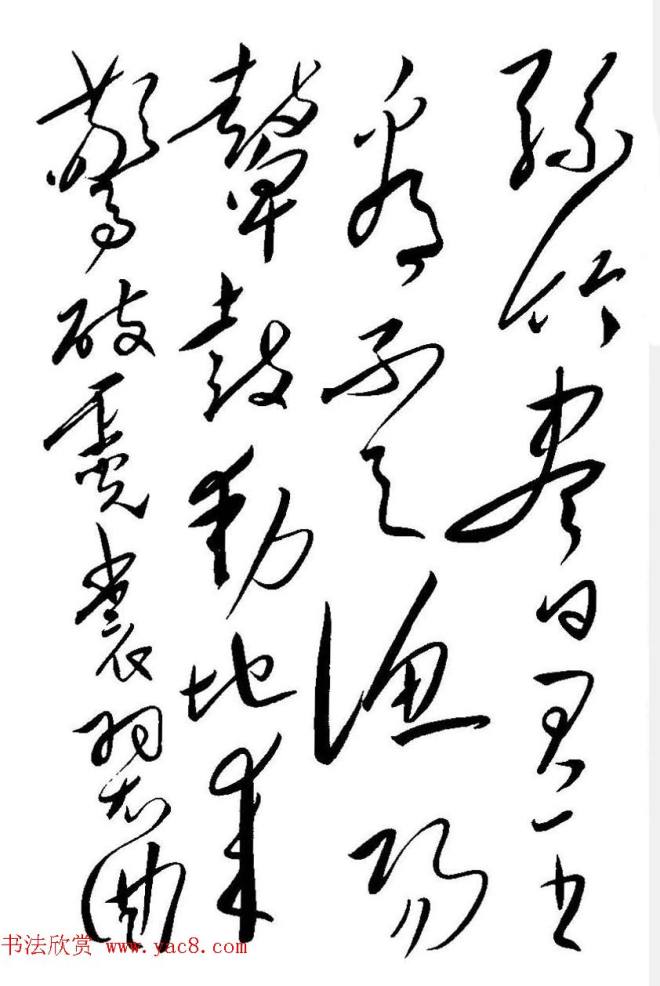 絲竹盡日君王
看不足漁陽
鼙鼓動地來
驚破霓裳羽衣曲
书法欣赏 www.yac8.com